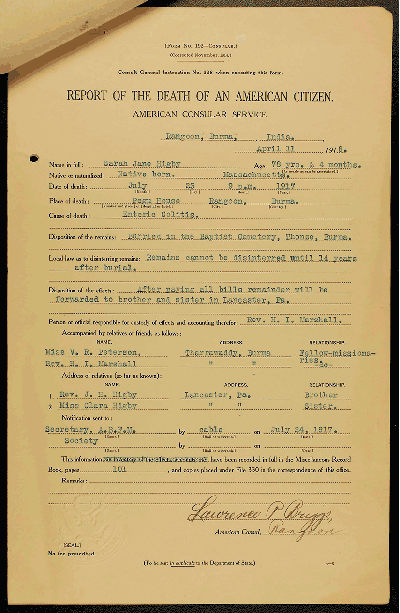 [FORM NO. 192—CONSULAR.]
(Corrected November, 1914.)
Consult General Instruction No. 326 when executing this form.
REPORT OF THE DEATH OF AN AMERICAN CITIZEN.
AMERICAN CONSULAR SERVICE,
Rangoon, Burma, India.
April 11 1918.
Name in full: Sarah Jane Higby Age 78 yrs. & 4 months.
Native or naturalized Native born. Massachusetts.
Date of death: July 23 9 p.m. 1917
Place of death: Pegu House Rangoon, Burma.
Cause of death Enteric Colitis.
Disposition of the remains: Burried in the Baptist Cemetery, Thonze, Burma.
Local law as to disinterring remains: Remains cannot be disinterred until 14 years
after burial.
Disposition of the effects: After paying all bills remainder will be
forwarded to brother and sister in Lancaster, Pa.
Person or official responsible for custody of effects and accounting therefor Rev. H. I. Marshall.
Accompanied by relatives or friends as follows:
NAME. ADDRESS RELATIONSHIP.
Miss V. R. Peterson, Tharrawaddy, Burma Fellow-mission-
ries.
Rev. H. I. Marshall " " -do-
Address of relatives (so far as known):
NAME. ADDRESS. RELATIONSHIP.
Rev. J. H. Higby Lancaster, Pa. Brother
Miss Clara Higby " " Sister.
Notification sent to:
Secretary, A.B.F.M. by cable on July 24, 1917.
Society by on
This information have been recorded in full in the Miscellaneous Record
Book, pages 101, and copies placed under File 330 in the correspondence of this office.
Remarks:
American Consul, Rangoon
[SEAL.]
No fee prescribed
(To be sent in triplicate to the Department of State.)